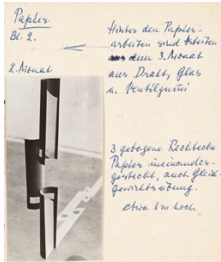 Papier
Bl. 2.
2. Monat
Hinter den Papier-
arbeiten sind Arbeiten
aus dem 3. Monat
aus Draht, Glas
u. Ventilgummi
3 gebogene Rechtecke
Papier ineinander-
gesteckt, auch Gleich-
gewichtsübung.
etwa 1 m hoch